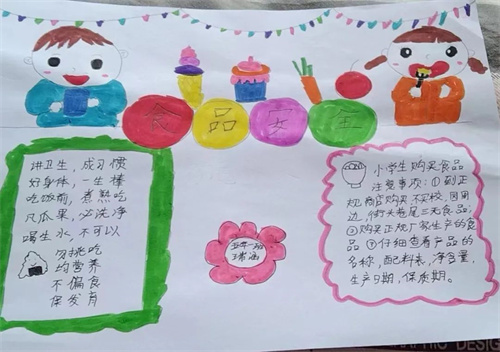 食品安全
讲卫生，成习惯
好身体，一生棒
吃饭前，煮熟吃
凡瓜果，必洗净
喝生水，不可以
勿挑吃
均营养
不偏食
保发育
小学生购买食品
注意事项：①到正
规商店购买不买校园周
边，街头巷尾三无食品；
②购买正规厂家生产的食
品③仔细查看产品的
名称，配料表，净含量，
生产日期，保质期。
GRAPHIC DESIG